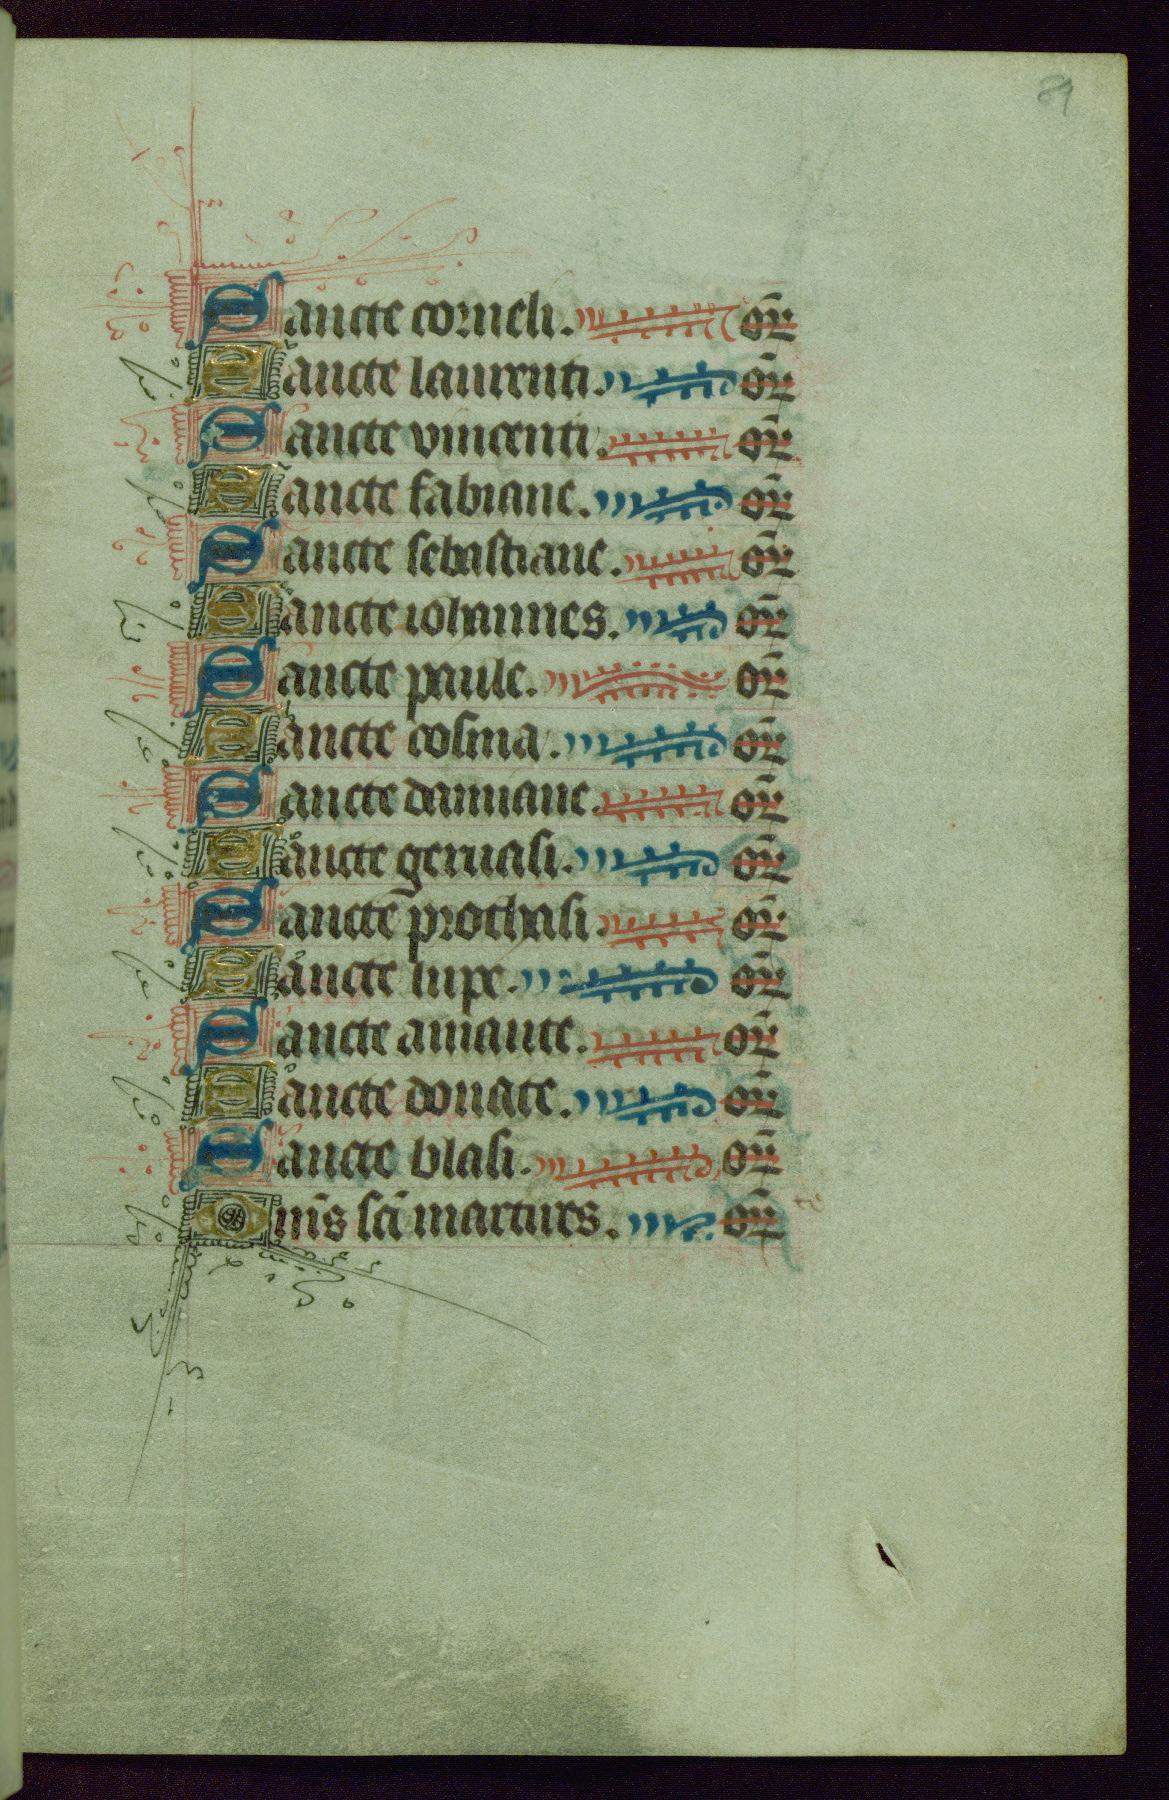 89
Sancte corneli. or
Sancte laurenti. or
Sancte vincenti. or
Sancte fabiane. or
Sancte sebastiane. or
Sancte iohannes. or
Sancte paule. or
Sancte cosma. or
Sancte damiane. or
Sancte geruasi. or
Sancte prothasi. or
Sancte lupe. or
Sancte amante. or
Sancte donate. or
Sancte blasi. or
Om̄s sc̄i martires. or